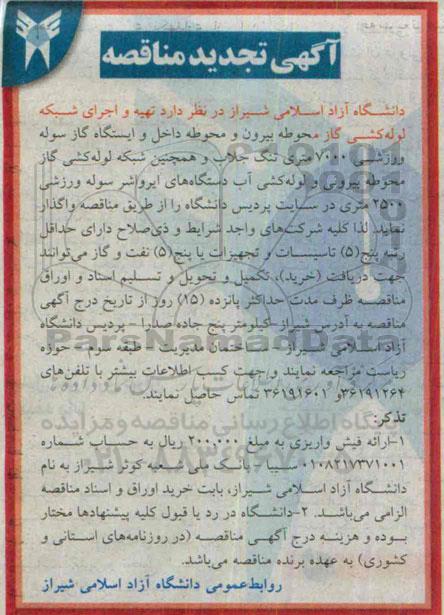 آگهی تجدید مناقصه
دانشگاه آزاد اسلامی شیراز در نظر دارد تهیه و اجرای شبکه
لوله‌کشی گاز محوطه بیرون و محوطه داخل و ایستگاه گاز سوله
ورزشی ۷۰۰۰ متری تنگ جلاب و همچنین شبکه لوله‌کشی گاز
محوطه بیرونی و لوله‌کشی آب دستگاه‌های ایرواشر سوله ورزشی
۲۵۰۰ متری در سایت پردیس دانشگاه را از طریق مناقصه واگذار
نماید. لذا کلیه شرکت‌های واجد شرایط و ذی‌صلاح دارای حداقل
رتبه پنج(۵) تاسیسات و تجهیزات یا پنج(۵) نفت و گاز می‌توانند
جهت دریافت (خرید)، تکمیل و تحویل و تسلیم اسناد و اوراق
مناقصه ظرف مدت حداکثر پانزده (۱۵) روز از تاریخ درج آگهی
مناقصه به آدرس شیراز-کیلومتر پنج جاده صدرا - پردیس دانشگاه
آزاد اسلامی شیراز - ساختمان مدیریت - طبقه سوم - حوزه
ریاست مراجعه نمایند و جهت کسب اطلاعات بیشتر با تلفن‌های
۳۶۱۹۱۲۶۴و ۳۶۱۹۱۶۰۱ تماس حاصل نمایند.
تذکر:
۱-ارائه فیش واریزی به مبلغ ۲۰۰,۰۰۰ ریال به حساب شماره
۰۱۰۸۲۱۷۳۷۱۰۰۱ سیبا - بانک ملی شعبه کوثر شیراز به نام
دانشگاه آزاد اسلامی شیراز، بابت خرید اوراق و اسناد مناقصه
الزامی می‌باشد. ۲-دانشگاه در رد یا قبول کلیه پیشنهادها مختار
بوده و هزینه درج آگهی مناقصه (در روزنامه‌های استانی و
کشوری) به عهده برنده مناقصه می‌باشد.
روابط‌عمومی دانشگاه آزاد اسلامی شیراز
ParsNamadData